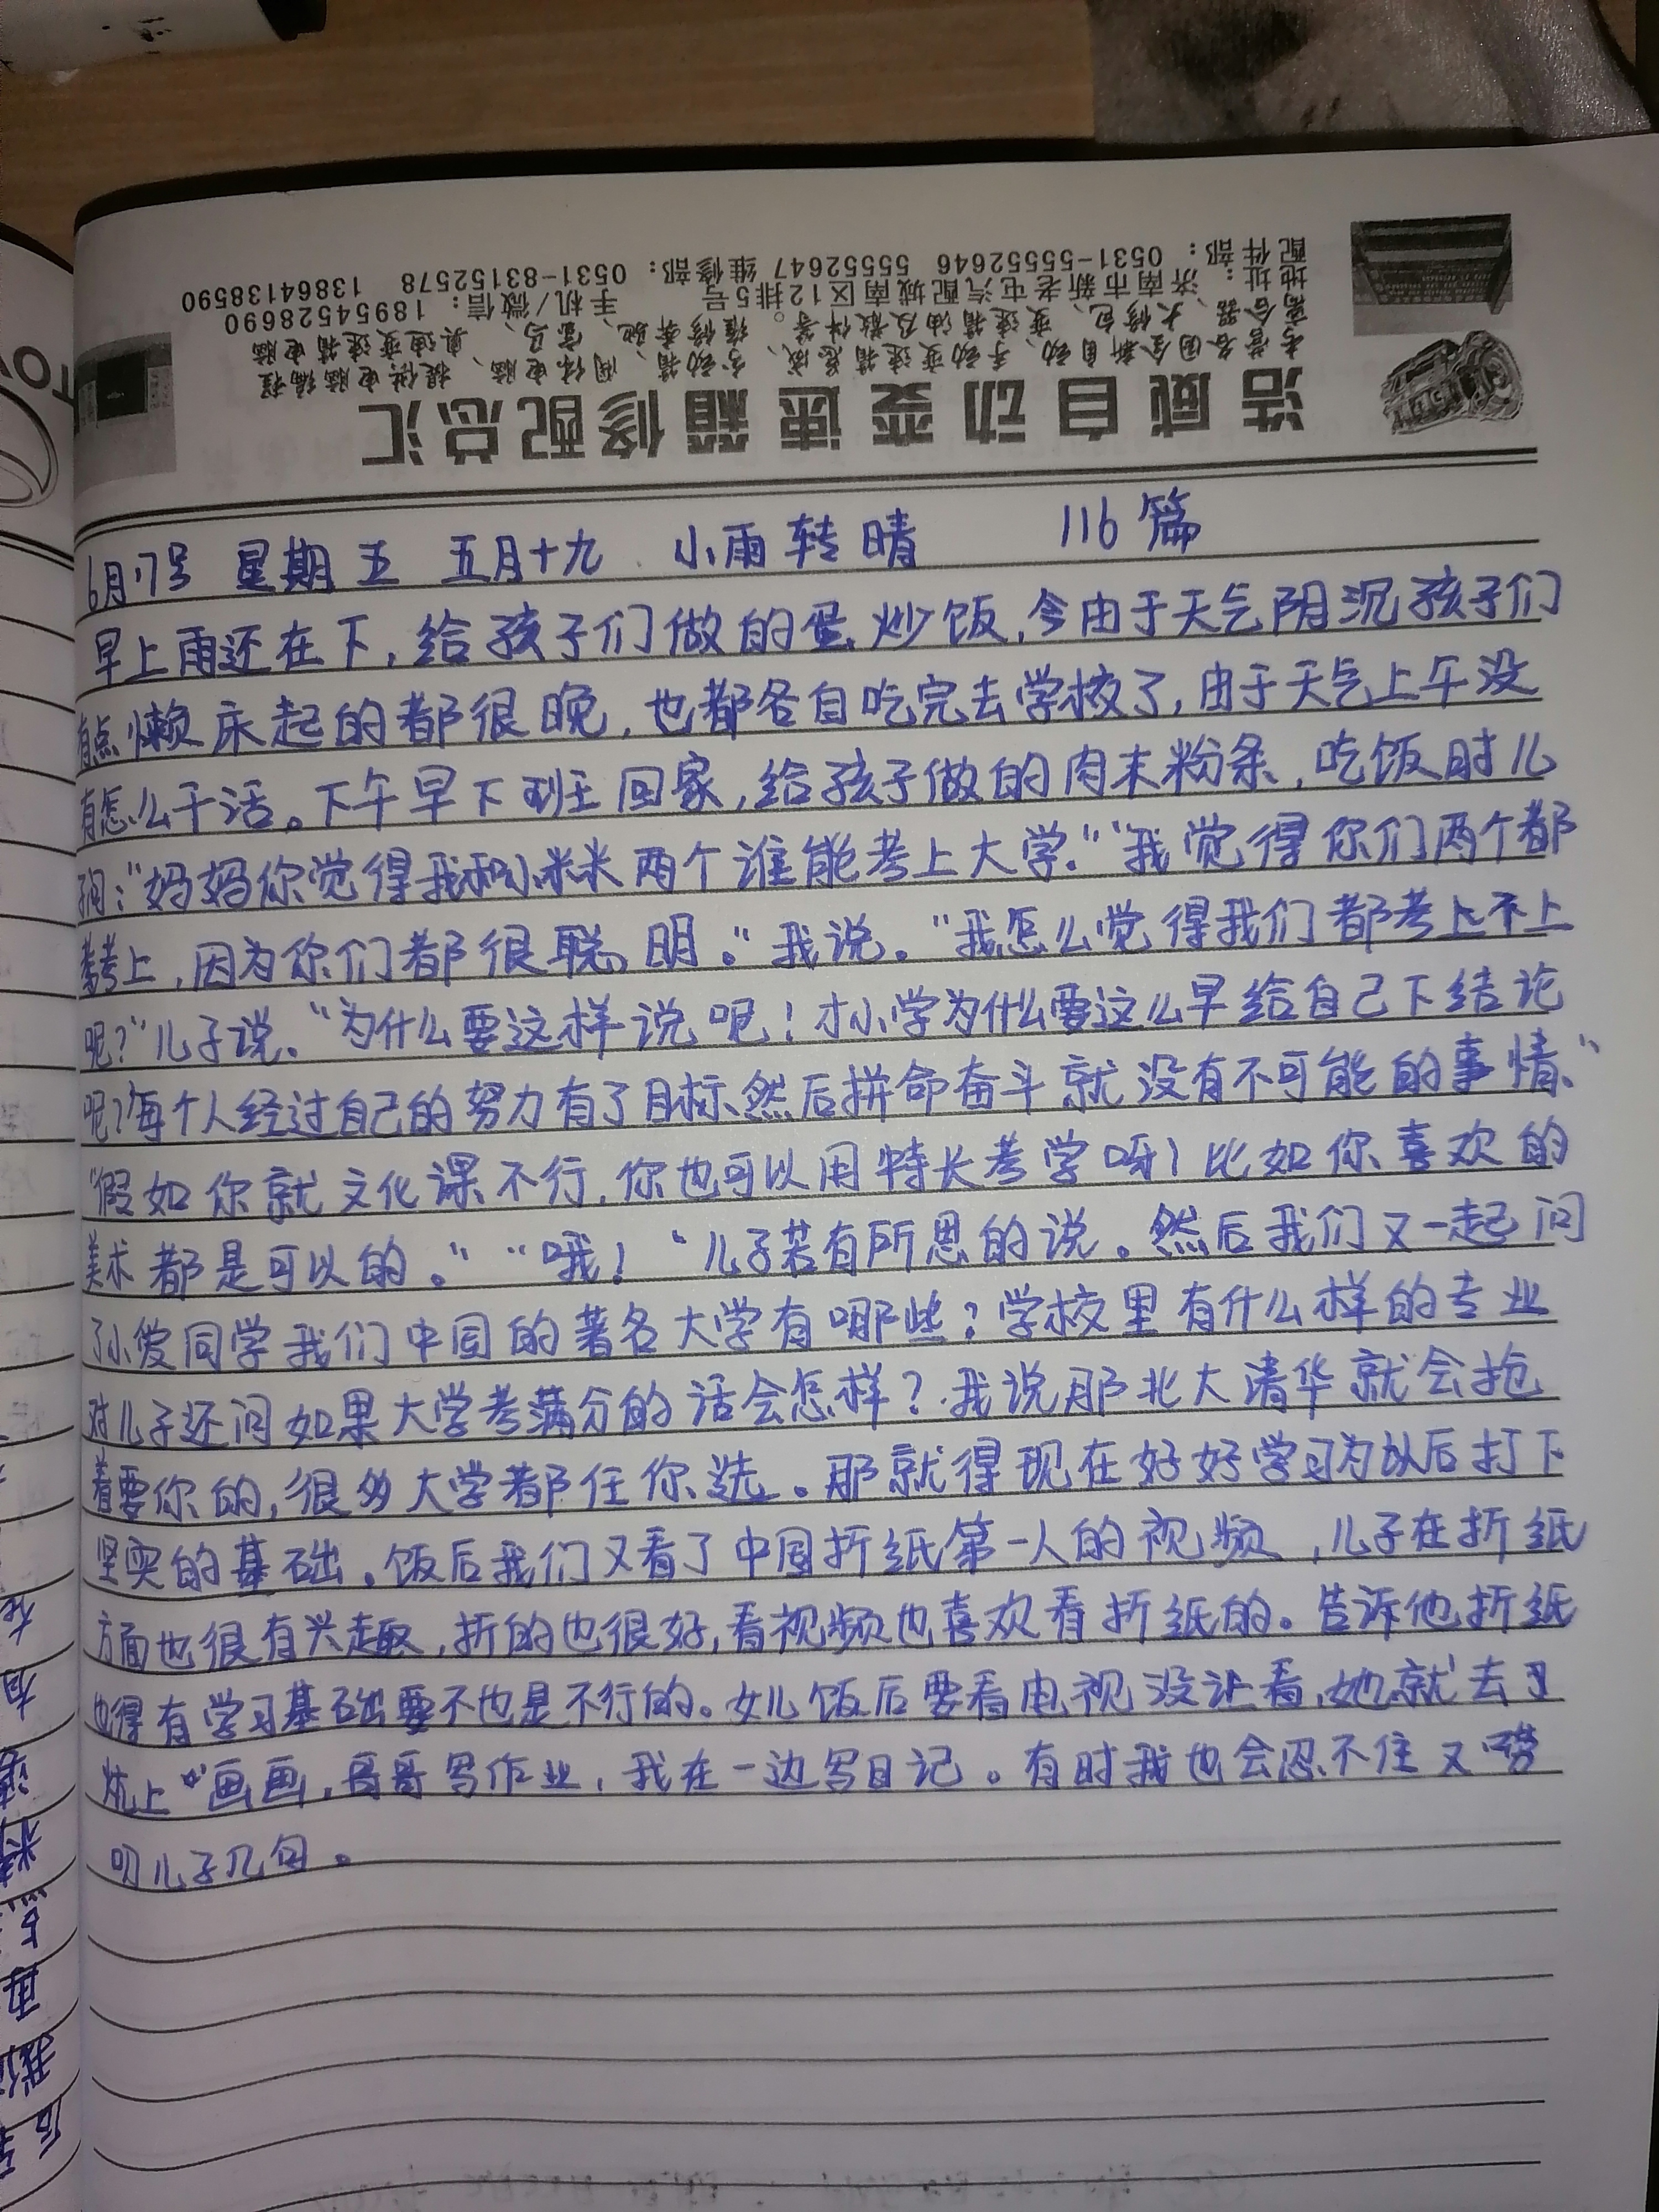 配件部：0531-55552646 55552647 维修部：0531-83152578 13864138590
地址：济南市新老屯汽配城南区12排5号 手机/微信：18954528690
离合器、大修包、变速箱油及散件等。维修奔驰、宝马、奥迪变速箱电脑
主营各国全新自动、手动变速箱总成、分动箱、阀体电脑、提供电脑编程
浩威自动变速箱修配总汇
6月17号 星期五 五月十九 小雨转晴 116篇
早上雨还在下，给孩子们做的蛋炒饭，今由于天气阴沉孩子们
有点懒床起的都很晚，也都各自吃完去学校了，由于天气上午没
有怎么干活。下午早下班回家，给孩子做的肉末粉条，吃饭时儿
问：“妈妈你觉得我和小米米两个谁能考上大学.”“我觉得你们两个都
考上，因为你们都很聪明。”我说。“我怎么觉得我们都考上不上
呢？”儿子说、“为什么要这样说呢！才小学为什么要这么早给自己下结论
呢？每个人经过自己的努力有了目标、然后拼命奋斗就没有不可能的事情、”
“假如你就文化课不行，你也可以用特长考学呀！比如你喜欢的
美术都是可以的。”“哦！”儿子若有所思的说。然后我们又一起问
小爱同学我们中国的著名大学有哪些？学校里有什么样的专业
对儿子还问如果大学考满分的话会怎样？我说那北大清华就会抢
着要你的，很多大学都任你选。那就得现在好好学习为以后打下
坚实的基础。饭后我们又看了中国折纸第一人的视频，儿子在折纸
方面也很有兴趣，折的也很好，看视频也喜欢看折纸的。告诉他折纸
也得有学习基础要不也是不行的。女儿饭后要看电视没让看，她就去了
炕上画画，哥哥写作业，我在一边写日记。有时我也会忍不住又唠
叨儿子几句。